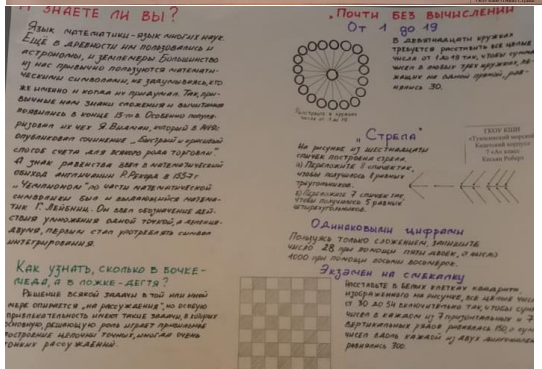 А ЗНАЕТЕ ЛИ ВЫ?
Язык математики-язык многих наук.
Ещё в древности им пользовались и
астрономы, и землемеры. Большинство
из нас привычно пользуются математи-
ческими символами, не задумываясь, кто
же именно и когда их придумал. Так, при-
вычные нам знаки сложения и вычитания
появились в конце 15-в. Особенно популя-
ризовал их чех Я. Видман, который в
опубликовал сочинение „Быстрый и красивый
способ счета для всего рода торговли"
А знак равенства ввел в математический
обиход англичанин Р. Рекорд в 1557г
„Чемпионом" по части математической
символики был и выдающийся матема-
тик Г. Лейбниц. Он ввел обозначение дей-
ствия умножения одной точкой, а деления-
двумя, первым стал употреблять символ
интегрирования.
Как узнать, сколько в бочке-
мёда, а в ложке-дёгтя?
Решение всякой задачи в той или иной
мере опирается „на рассуждения", но особую
привлекательность имеют такие задачи, в которых
основную, решающую роль играет правильное
построение цепочки точных, иногда очень
тонких рассуждений.
„Почти без вычислений
От 1 до 19
В девятнадцати кружках
требуется расставить все целые
числа от 1 до 19 так, чтобы сумма
чисел в любых трех кружках, ле-
жащих на одной прямой, рав-
нялась 30.
Расставьте в кружках
числа от 1 до 19
„Стрела"
На рисунке из шестнадцати
спичек построена стрела.
а) Переложите 8 спичек так,
чтобы получилось 8 равных
треугольников.
б) Переложите 7 спичек так
чтобы получилось 5 равных
четырехугольников.
ГКОУ КШИ
«Туапсинский морской
Кадетский корпус»
7 «А» класс
Роберт
Одинаковыми цифрами
Пользуясь только сложением, запишите
число 28 при помощи пяти двоек, а число
1000 при помощи восьми восьмерок.
Экзамен на смекалку
Расставьте в белых клетках квадрата,
изображенного на рисунке, все целые числа
от 30 до 54 включительно так, чтобы сумма
чисел в каждом из 7 горизонтальных и 7
вертикальных рядов равнялась 150, а сумма
чисел вдоль каждой из двух диагоналей
равнялась 300.